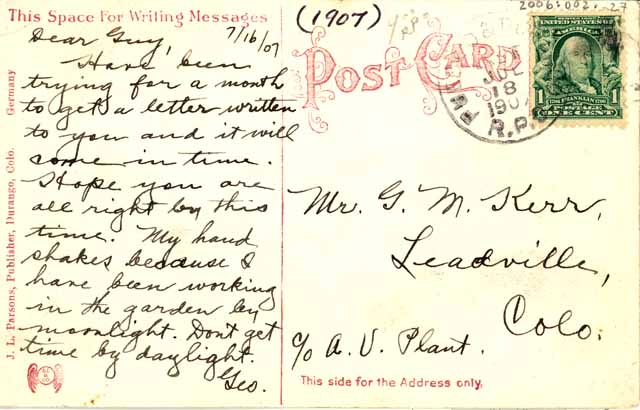 This Space For Writing Messages
7/16/07
Dear Guy,
Have been
trying for a month
to get a letter written
to you and it will
come in time.
Hope you are
all right by this
time. My hand
shakes because I
have been working
in the garden by
moonlight. Dont get
time by daylight.
Geo.
J. L. Parsons, Publisher, Durango, Colo. Germany
(1907)
2006:002.-27
POST CARD
JUL
18
1907
R.P.O.
1 FRANKLIN 1
ONE CENT
Mr. G. M. Kerr,
Leadville,
Colo.
c/o A. V. Plant.
This side for the Address only.